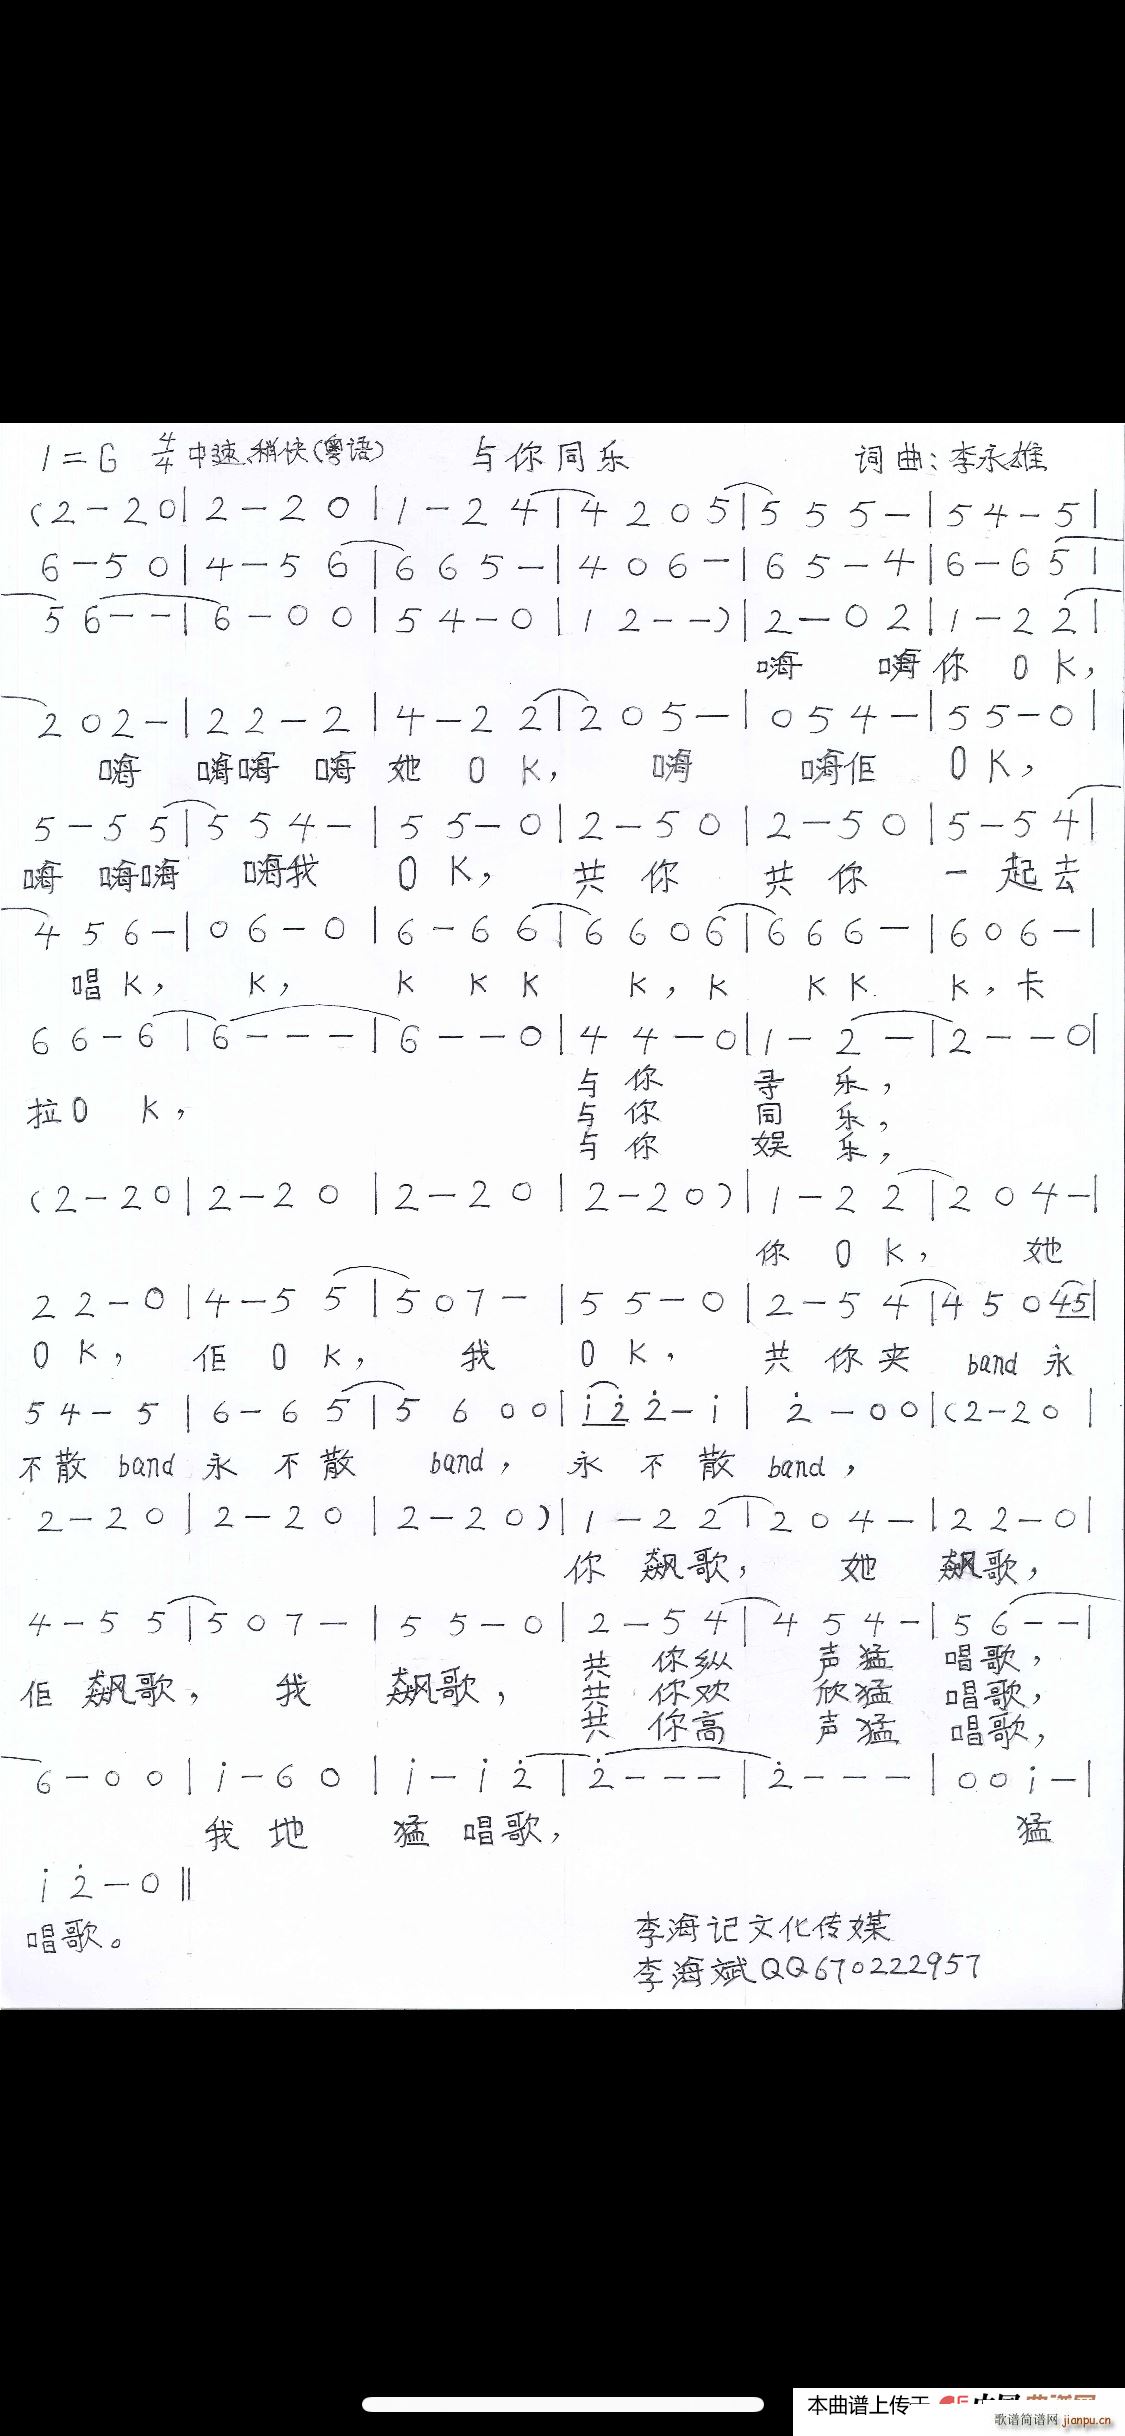 1=G 4/4 中速、稍快(粤语) 与你同乐 词曲:李永雄
(2-20|2-20|1-24|4205|555-|54-5|
6-50|4-56|665-|406-|65-4|6-65|
56--|6-00|54-0|12--)|2-02|1-22|
嗨 嗨你 O K,
202-|22-2|4-22|205-|054-|55-0|
嗨 嗨嗨 嗨 她 O K, 嗨 嗨佢 O K,
5-55|554-|55-0|2-50|2-50|5-54|
嗨 嗨嗨 嗨我 O K, 共 你 共 你 一 起去
456-|06-0|6-66|6606|666-|606-|
唱K, K, K K K K, K K K K, 卡
66-6|6---|6--0|44-0|1-2-|2--0|
与 你 寻 乐,
拉O K, 与 你 同 乐,
与 你 娱 乐,
(2-20|2-20|2-20|2-20)|1-22|204-|
你 O K, 她
22-0|4-55|507-|55-0|2-54|45045|
O K, 佢 O K, 我 O K, 共 你 夹 band 永
54-5|6-65|5600|i̇2̇2̇-i̇|2̇-00|(2-20|
不散 band 永 不 散 band, 永 不 散 band,
2-20|2-20|2-20)|1-22|204-|22-0|
你 飙歌, 她 飙歌,
4-55|507-|55-0|2-54|454-|56--|
共 你纵 声猛 唱歌,
佢 飙歌, 我 飙歌, 共 你欢 欣猛 唱歌,
共 你高 声猛 唱歌,
6-00|i̇-60|i̇-i̇2̇|2̇---|2̇---|00i̇-|
我 地 猛 唱歌, 猛
i̇2̇-0‖
唱歌。
李海记文化传媒
李海斌QQ670222957
本曲谱上传于
歌谱简谱网 jianpu.cn